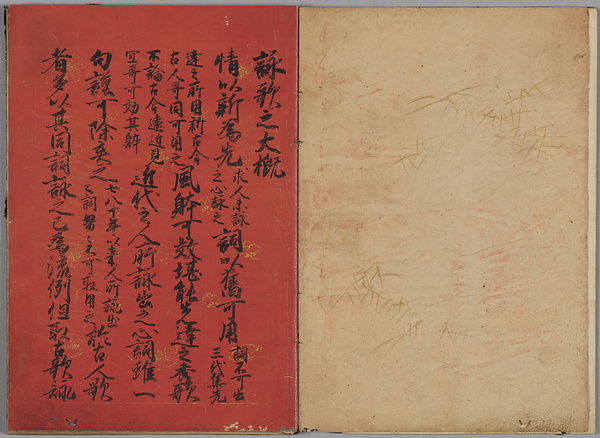 詠歌之大概
情以新為先求人未詠之心詠之詞以舊可用詞不可出三代集先
達之所用新古今古人哥同可用之風躰可效堪能先達之秀歌
不論古今遠近見宜哥可効其躰近代之人所詠出之心詞雖一
句謹可除棄之七八十年以来人所詠出之詞努々不可取用之於古人歌
者多以其同詞詠之已為流例但取古歌詠